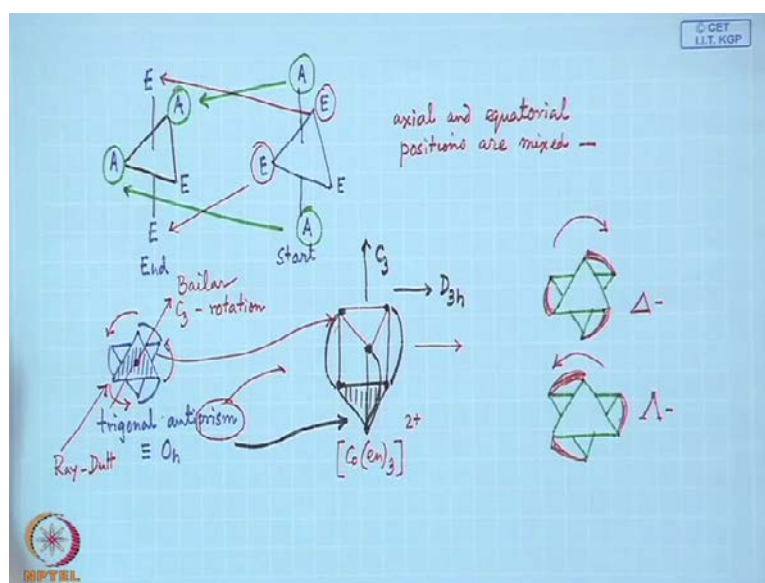 © CET
I.I.T. KGP
E
A
A
E
E
End
A
E
E
E
A
Start
axial and equatorial
positions are mixed —
Bailar
C3 - rotation
trigonal antiprism
≡ Oh
Ray-Dutt
C3
D3h
2+
[Co(en)3]
Δ-
Λ-
NPTEL